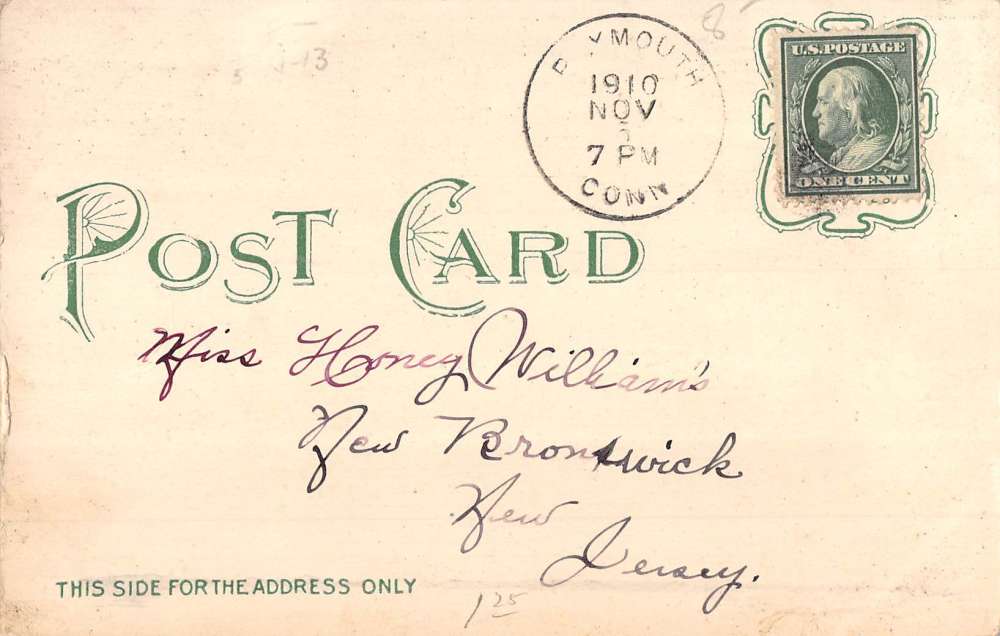 PLYMOUTH
1910
NOV
7 PM
CONN
U.S. POSTAGE
ONE CENT
POST CARD
Miss Honey William's
New Bronswick
New
Jersey.
THIS SIDE FOR THE ADDRESS ONLY
1 25